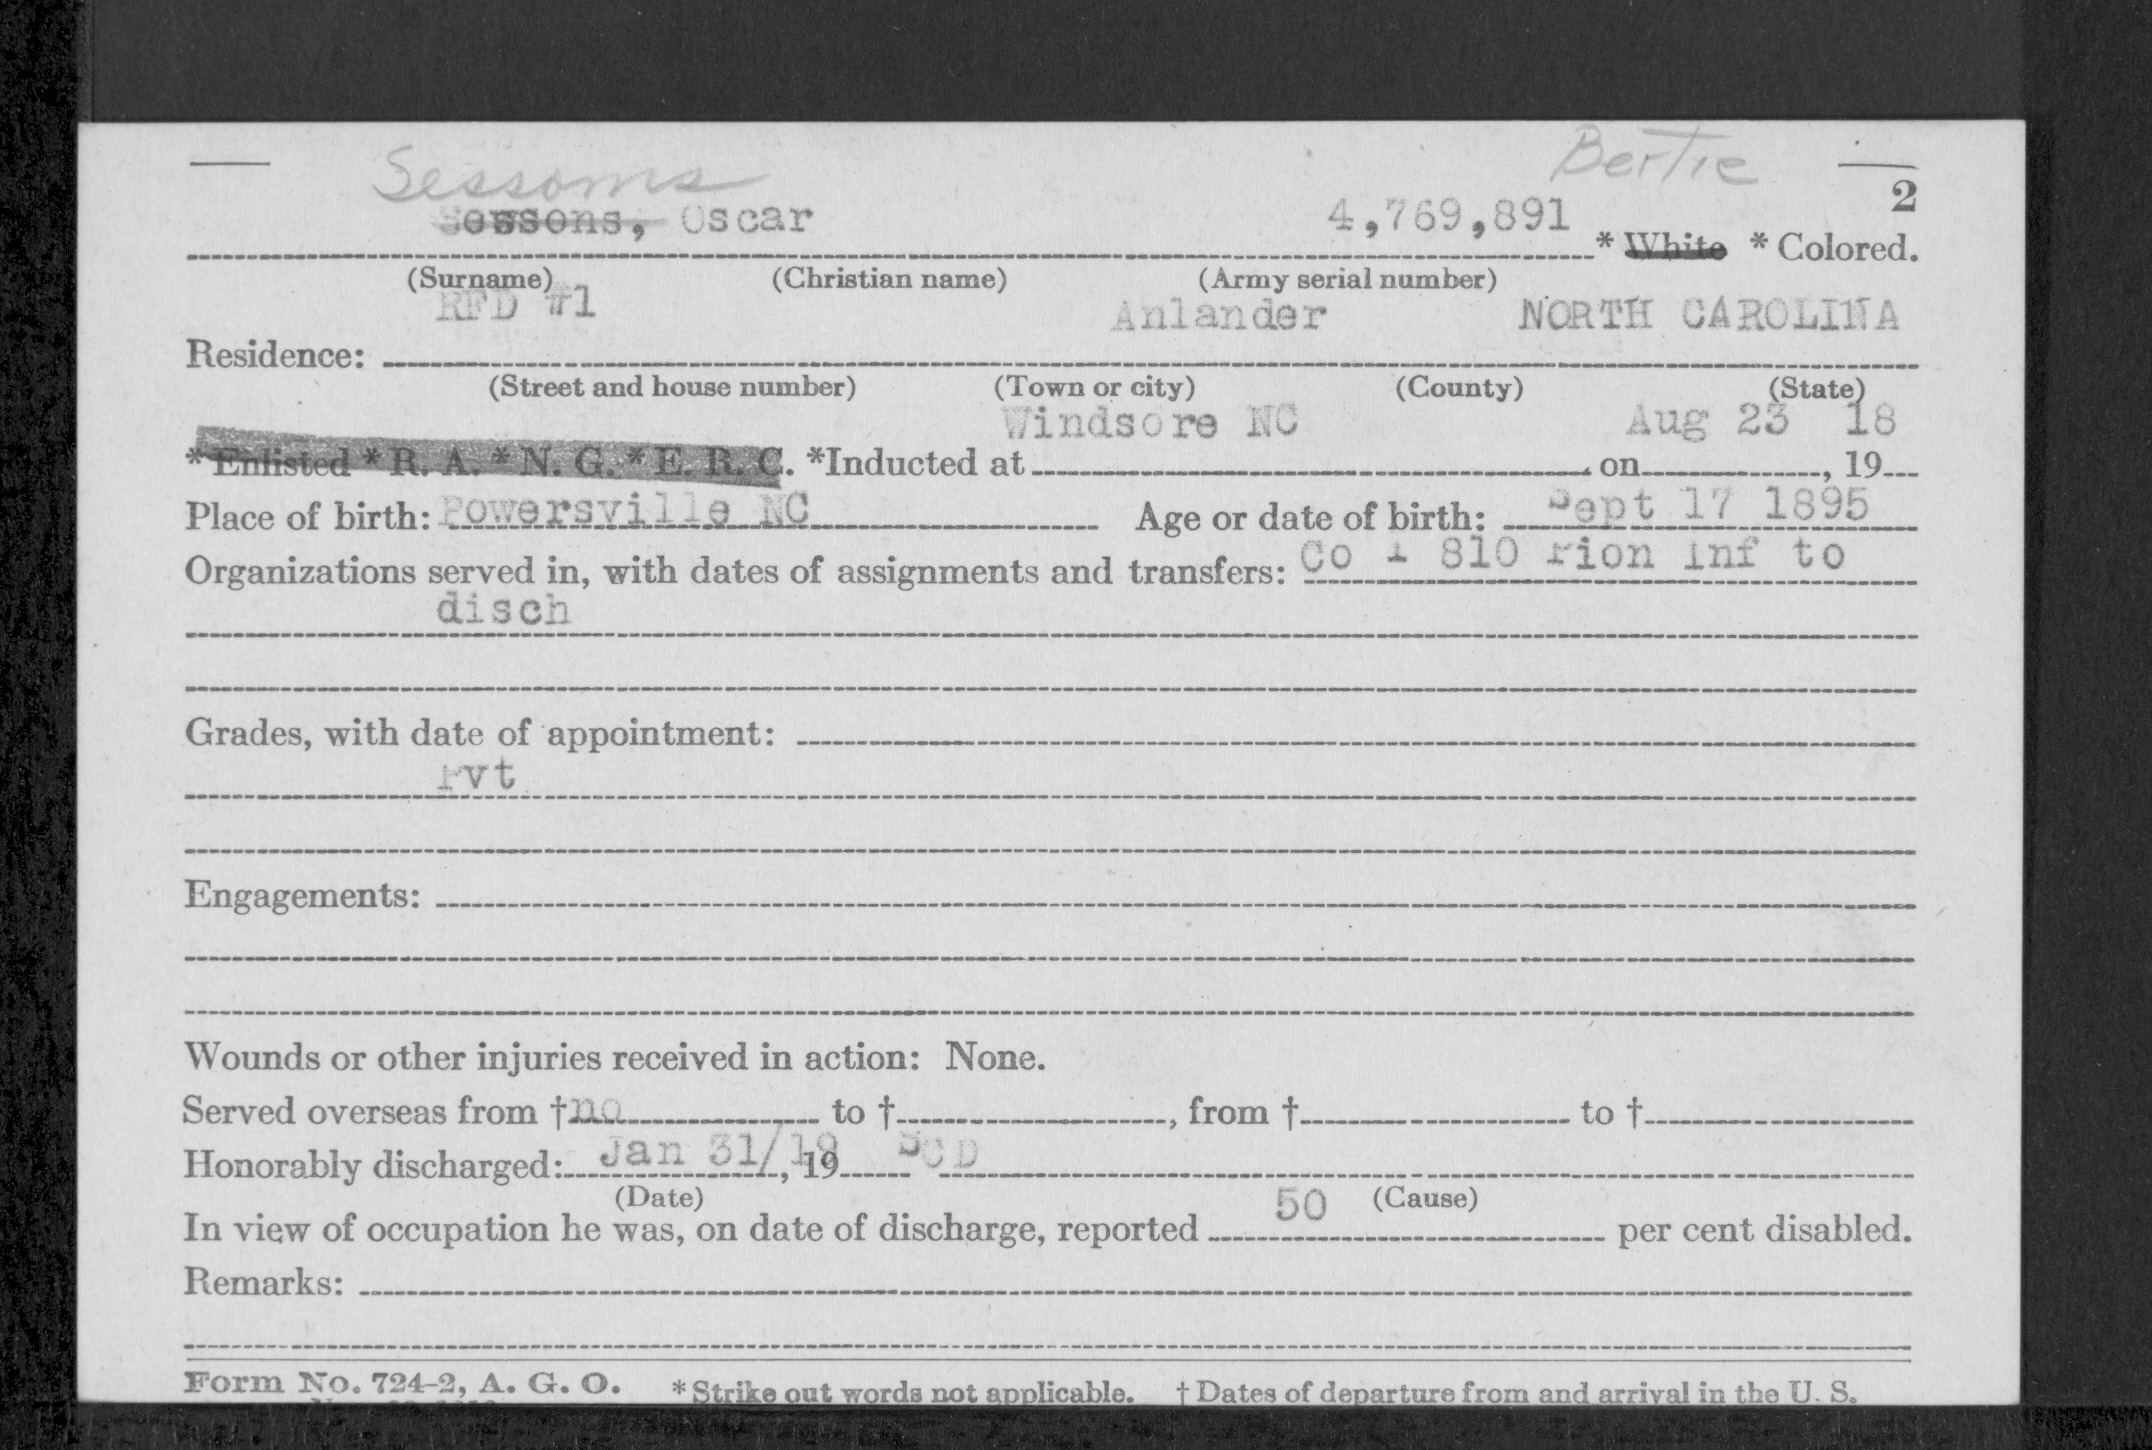 Sessoms Bertie
2
Sessons, Oscar 4,769,891 * White * Colored.
(Surname) (Christian name) (Army serial number)
RFD #1 Anlander NORTH CAROLINA
Residence:
(Street and house number) (Town or city) (County) (State)
Windsore NC Aug 23 18
* Enlisted * R. A. * N. G. * E. R. C. *Inducted at on , 19
Place of birth: Powersville NC Age or date of birth: Sept 17 1895
Organizations served in, with dates of assignments and transfers: Co I 810 Pion Inf to
disch
Grades, with date of appointment:
Pvt
Engagements:
Wounds or other injuries received in action: None.
Served overseas from †no to † , from † to †
Honorably discharged: Jan 31/19 , 19 SCD
(Date) (Cause)
In view of occupation he was, on date of discharge, reported 50 per cent disabled.
Remarks:
Form No. 724-2, A. G. O. * Strike out words not applicable. † Dates of departure from and arrival in the U. S.